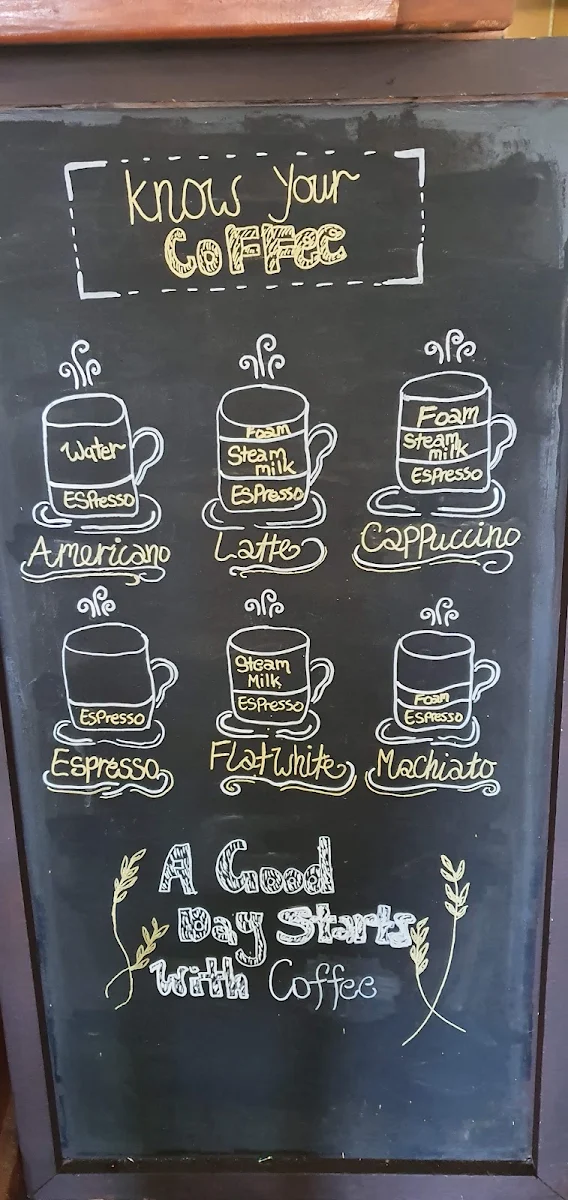 Know Your
COFFee
Water
ESPresso
Americano
Foam
Steam
milk
ESPresso
Latte
Foam
Steam
milk
ESPresso
Cappuccino
ESPresso
Espresso
Steam
Milk
ESPresso
Flatwhite
Foam
ESPresso
Machiato
A Good
Day Starts
With Coffee